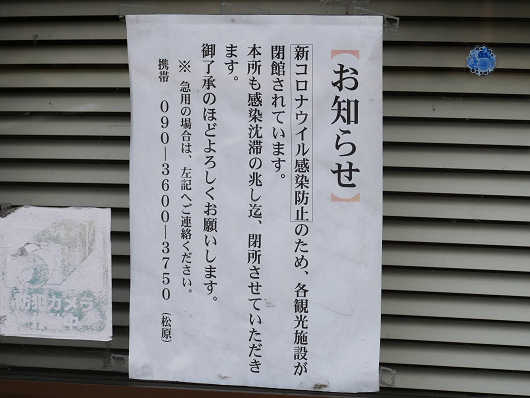 【お知らせ】
新コロナウイル感染防止のため、各観光施設が
閉館されています。
本所も感染沈滞の兆し迄、閉所させていただき
ます。
御了承のほどよろしくお願いします。
※ 急用の場合は、左記へご連絡ください。
携帯 090―3600―3750（松原）
防犯カメラ